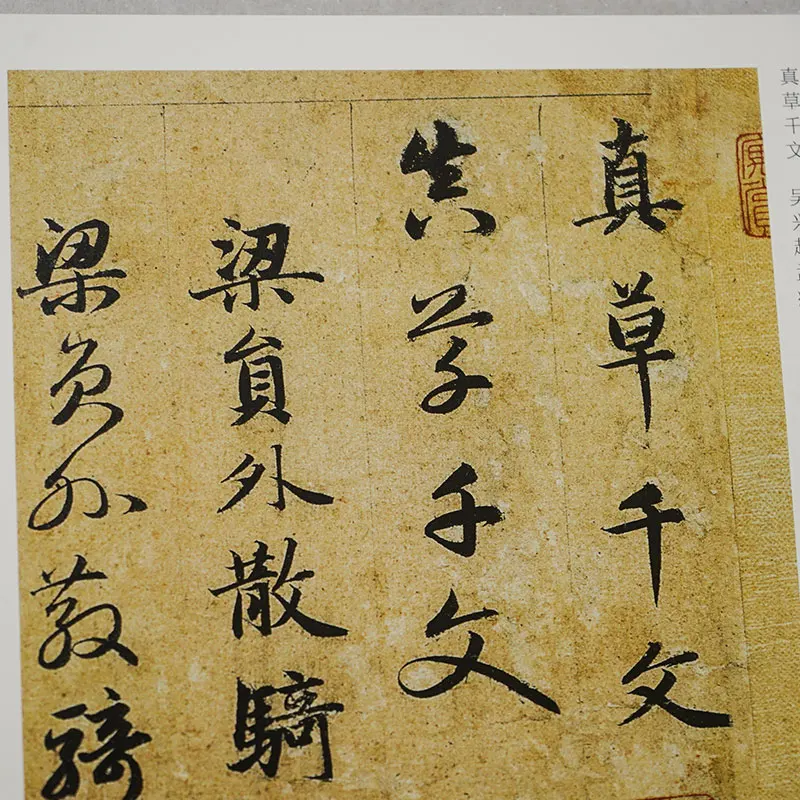 真草千文 吴兴赵
真草千文
真草千文
梁員外散騎
梁員外散騎